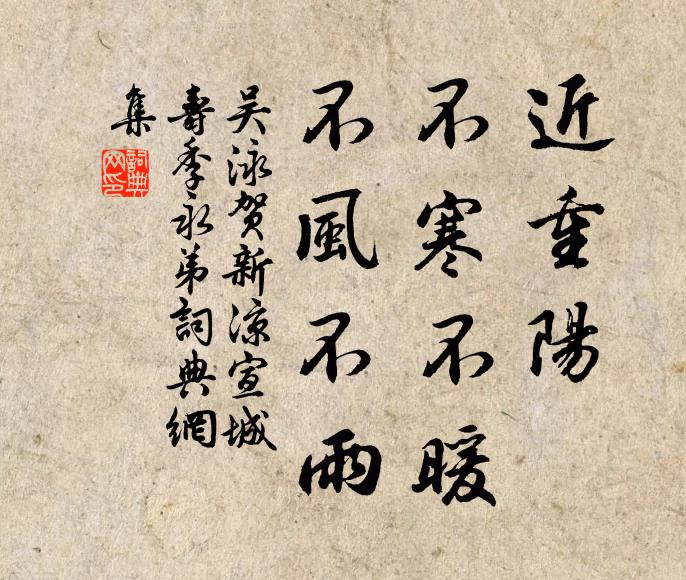 近重陽
不寒不暖
不風不雨
吴泳贺新凉宣城
壽季永弟詞典網
集
詞典网印